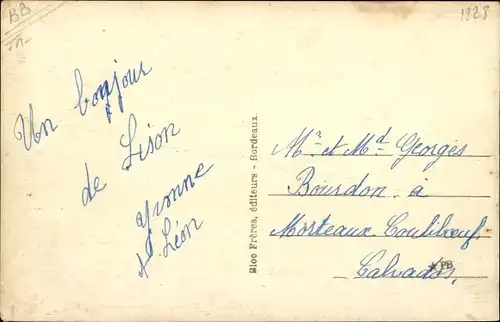 BB
1828
Un bonjour
de Lison
Yvonne
et Léon
Bloc Frères, éditeurs - Bordeaux
Mr et Md Georges
Bourdon à
Morteaux Coutiboeuf
Calvados.
PB